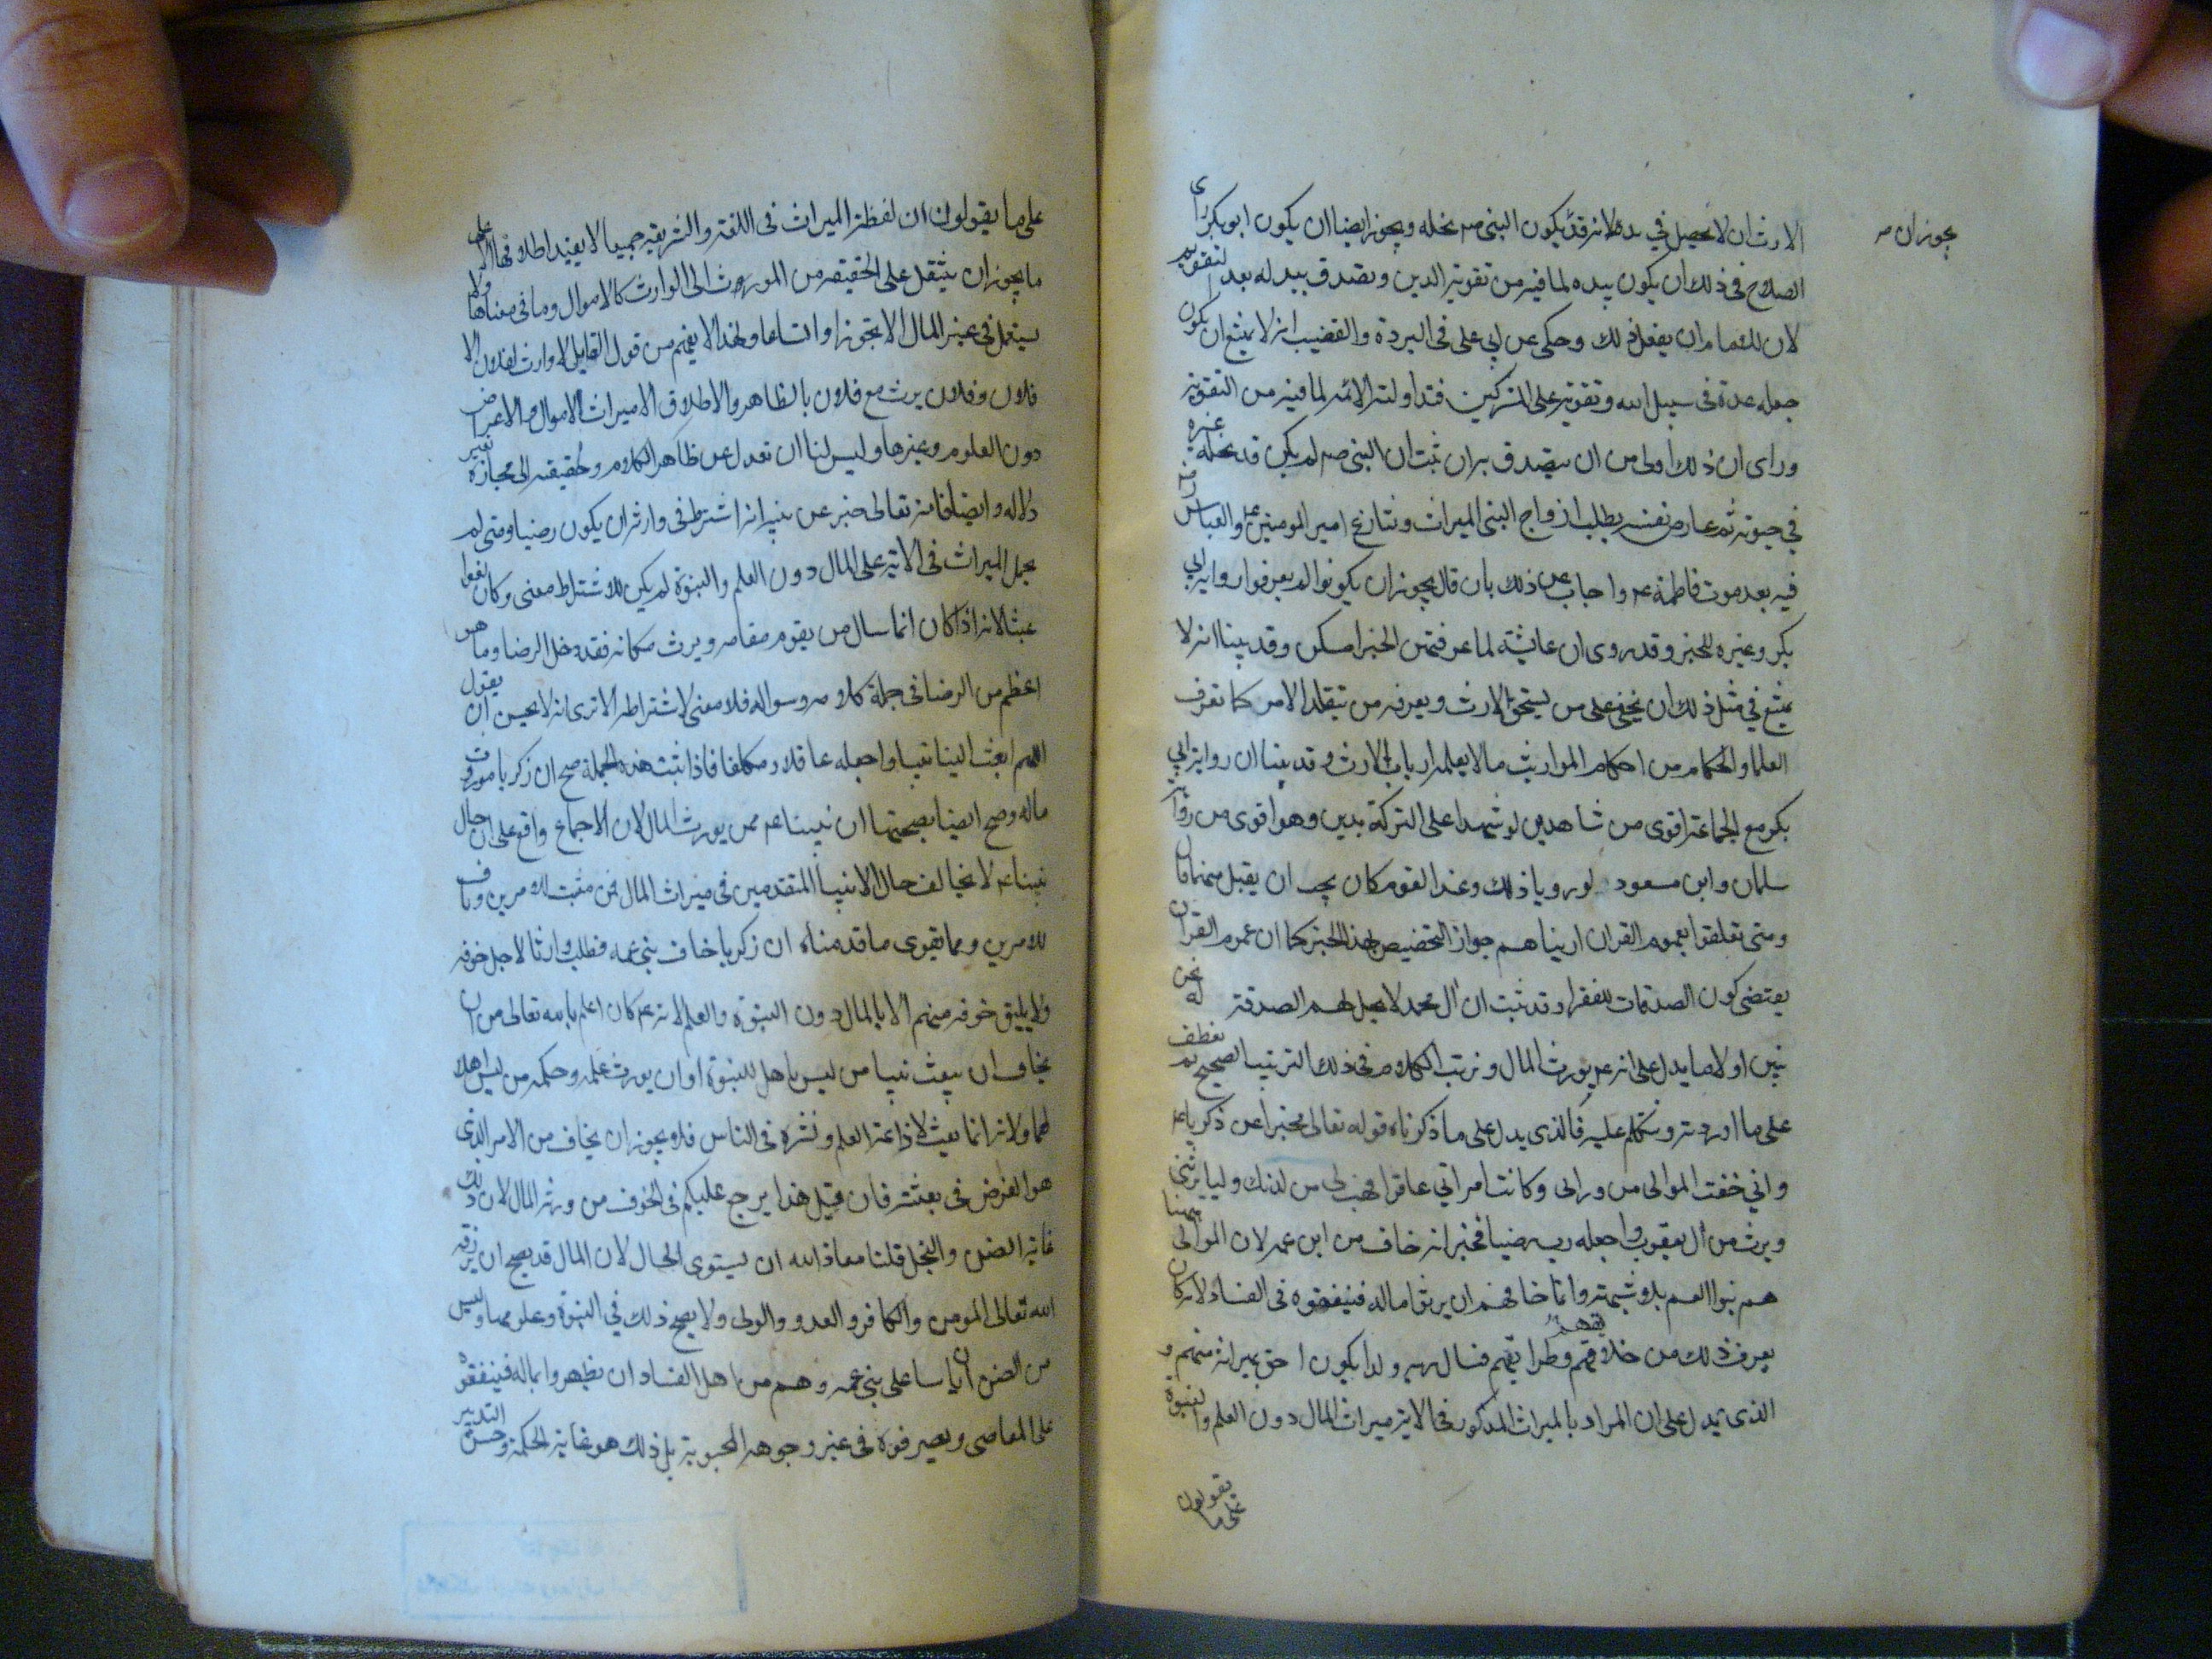 يجوز ان
الارث ان لا يحصل في يده لانه قد يكون النبي صم نحله ويجوز ايضا ان يكون ابو بكر راى
الصلاح في ذلك ان يكون بيده لما فيه من تقوية الدين وتصدق ببدله بعد التقويم
لان للامام ان يفعل ذلك وحكى عن ابي على في البردة والقضيب انه لا يمتنع ان يكون
جعله عدة في سبيل الله وتقوية على المشركين فتداولته الائمه لما فيه من التقوية
وراى ان ذلك اولى من ان يتصدق به ان ثبت ان النبي صم لم يكن قد نحله غيره
في حيوته ثم عارض نفسه بطلب ازواج النبي الميراث وتنازع امير المومنين عم والعباس رضه
فيه بعد موت فاطمة عم واجاب عن ذلك بان قال يجوز ان يكونوا لم يعرفوا رواية ابي
بكر وغيره للخبر وقد روى ان عايشة لما عرفتهن الخبر امسكن وقد بينا انه لا
يمتنع في مثل ذلك ان يخفى على من يستحق الارث ويعرفه من يتقلد الامر كما تعرف
العلما والحكام من احكام المواريث ما لا يعلمه ارباب الارث وقد بينا ان رواية ابي
بكر مع الجماعة اقوى من شاهدين لو شهدا على التركة بدين وهو اقوى من رواية
سلمان وابن مسعود لو رويا ذلك وعند القوم كان يجب ان يقبل منهما قال
ومتى تعلقوا بعموم القران اريناهم جواز التخصيص بهذا الخبر كما ان عموم القران
يقتضى كون الصدقات للفقرا وقد ثبت ان ال محمد لا يحل لهم الصدقة له نحن
نبين اولا ما يدل على انه عم يورث المال ونرتب الكلام في ذلك الترتيب الصحيح ثم نعطف
على ما اورده ونتكلم عليه فالذى يدل على ما ذكرناه قوله تعالى مخبرا عن زكريا عم
واني خفت الموالى من وراى وكانت امراتي عاقرا فهب لى من لدنك وليا يرثني
ويرث من ال يعقوب واجعله رب رضيا فخبر انه خاف من ابن عمه لان الموالى ههنا
هم بنوا العم بلا شبهة وانما خافهم ان يرثوا ماله فينفقوه في الفساد لانه كان
يعرف ذلك من خلائقهم وطرائقهم فسال ربه ولدا يكون احق بميراثه منهم و
الذى يدل على ان المراد بالميراث المذكور في الاية ميراث المال دون العلم والنبوة
على ما يقولون
على ما يقولون ان لفظة الميراث في اللغة والشريعة جميعا لا يفيد اطلاقها الا على
ما يجوز ان ينتقل على الحقيقه من المورث الى الوارث كالاموال وما في معناها ولا
يستعمل في غير المال الا تجوزا واتساعا ولهذا لا يفهم من قول القايل لا وارث لفلان الا
فلان وفلان يرث مع فلان بالظاهر والاطلاق الا ميراث الاموال والاعراض
دون العلوم وغيرها وليس لنا ان نعدل عن ظاهر الكلام وحقيقته الى مجازه بغير
دلاله وايضا فانه تعالى خبر عن نبيه انه اشترط في وارثه ان يكون رضيا ومتى لم
يحمل الميراث في الاية على المال دون العلم والنبوة لم يكن للاشتراط معنى وكان لغوا
عبثا لانه اذا كان انما سال من يقوم مقامه ويرث مكانه فقد دخل الرضا وما هو
اعظم من الرضا في جملة كلامه وسواله فلا معنى لاشتراطه الا ترى انه لا يحسن ان يقول
اللهم ابعث الينا نبيا واجعله عاقلا ومكلفا فاذا ثبتت هذه الجملة صح ان زكريا موروث
ماله وصح ايضا بصحتها ان نبينا عم ممن يورث المال لان الاجماع واقع على ان حال
نبينا عم لا يخالف حال الانبيا المتقدمين في ميراث المال فمن مثبت للامرين وناف
للامرين ومما يقوى ما قدمناه ان زكريا خاف بني عمه فطلب وارثا لاجل خوفه
ولا يليق خوفه منهم الا بالمال دون النبوة والعلم لانه عم كان اعلم بالله تعالى من ان
يخاف ان يبعث نبيا من ليس باهل للنبوة او ان يورث علمه وحكمه من ليس اهلا
لهما ولانه انما بعث لاذاعة العلم ونشره في الناس فلا يجوز ان يخاف من الامر الذى
هو الغرض في بعثته فان قيل هذا يرجع عليكم في الخوف من ورثه المال لان ذلك
غاية الضن والبخل قلنا معاذ الله ان يستوى الحال لان المال قد يصح ان يرزقه
الله تعالى المومن والكافر والعدو والولى ولا يصح ذلك في النبوة وعلومها وليس
من الضن ان ياسا على بني عمه وهم من اهل الفساد ان يظهروا بماله فينفقوه
على المعاصى ويصرفوه في غير وجوهه المحبوبة بل ذلك هو غاية الحكمة وحسن التدبير